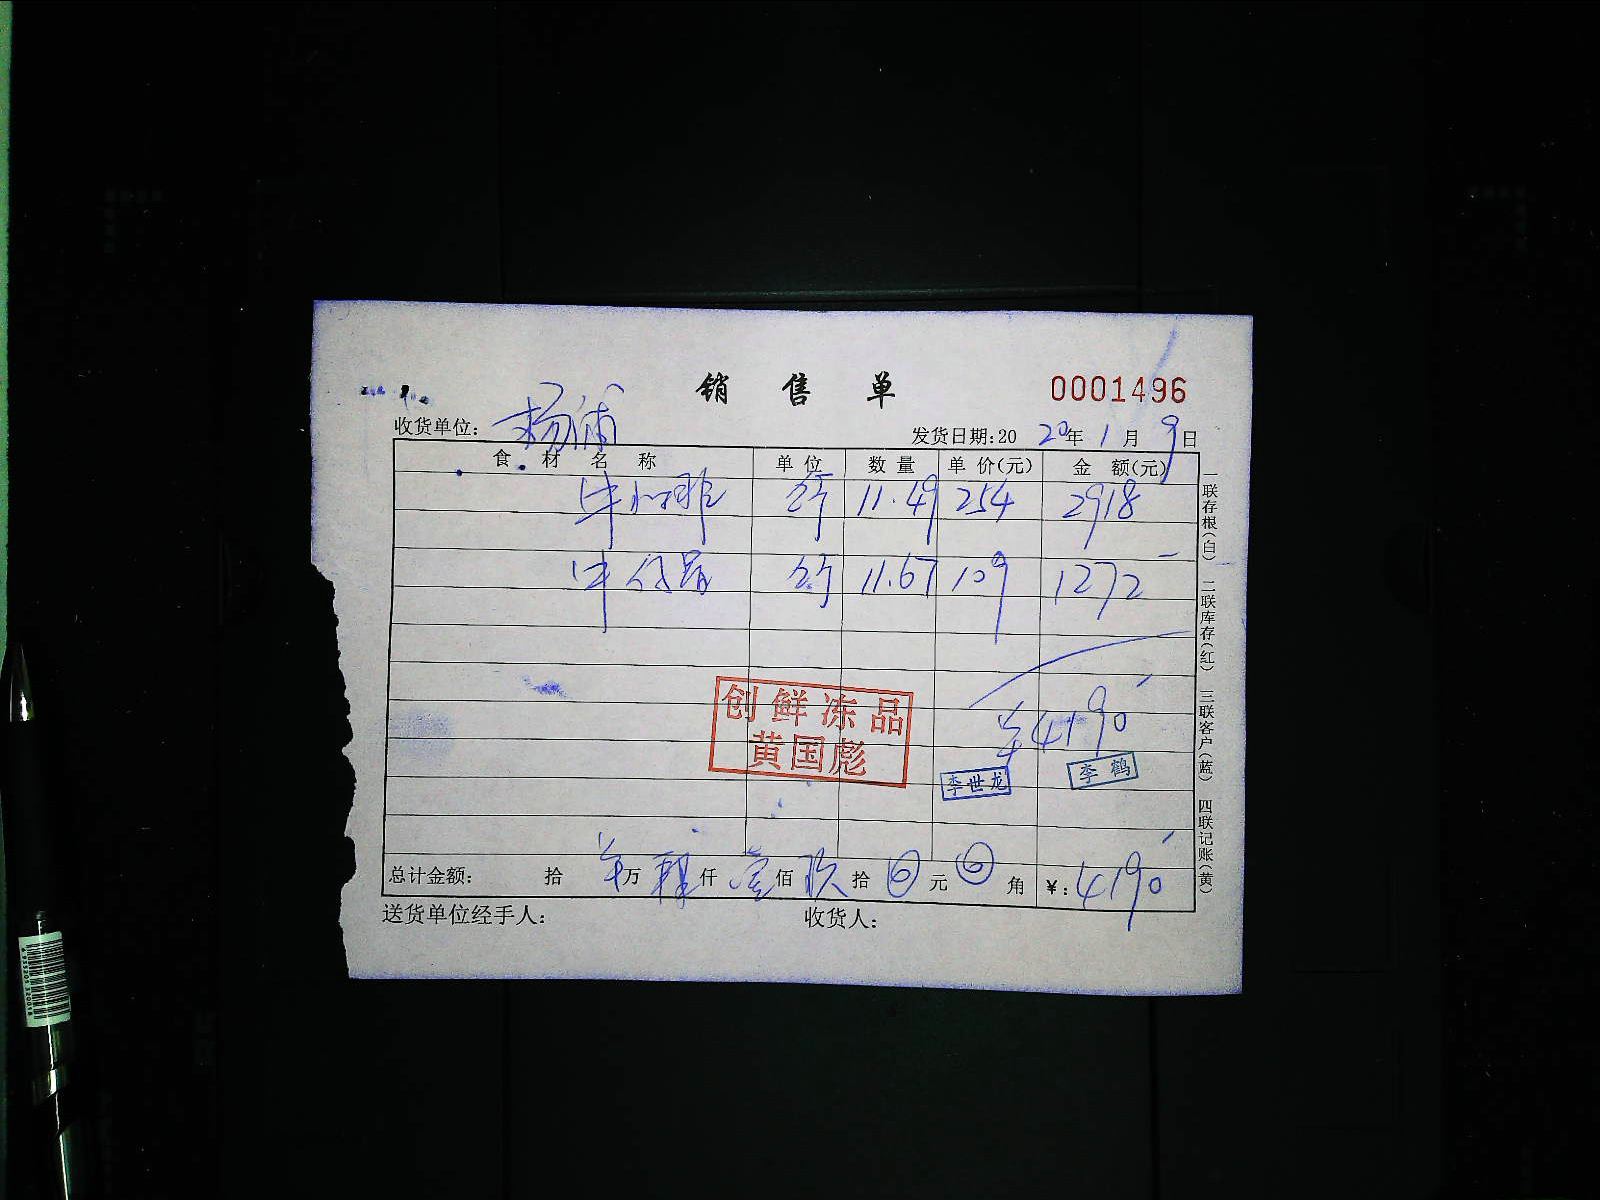 销售单 0001496
收货单位: 杨浦 发货日期:20 20年 1月 9日
食材名称 单位 数量 单价(元) 金额(元)
牛 斤 11.49 254 2918
牛仔骨 斤 11.67 109 1272
¥4190
创鲜冻品
黄国彪
李世龙 李鹤
总计金额: 拾 万 肆仟 壹佰 玖拾 0元 0角 ¥:4190
送货单位经手人: 收货人:
一联存根(白) 二联库存(红) 三联客户(蓝) 四联记账(黄)